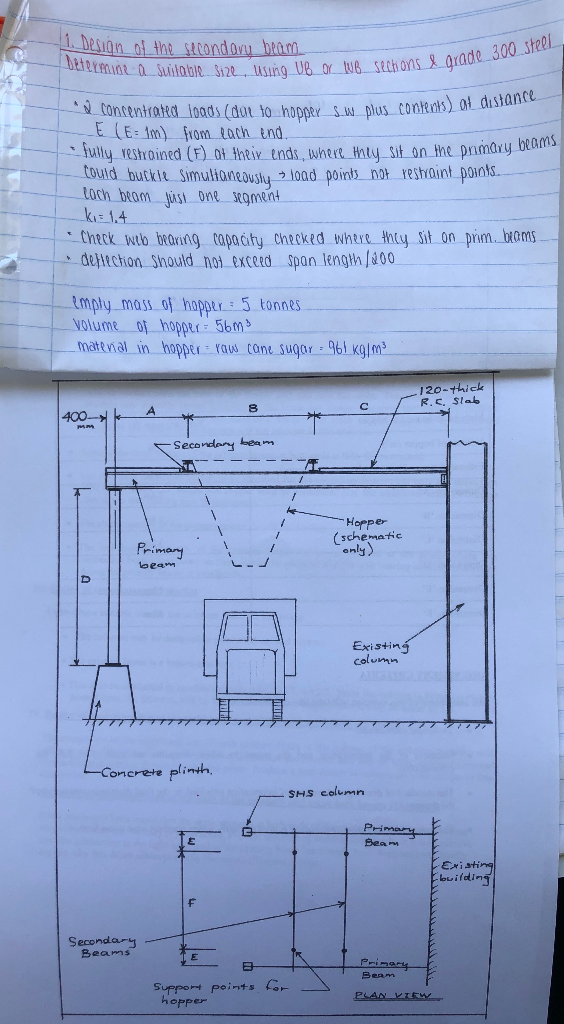 1. Design of the secondary beam
Determine a suitable size, using UB or WB sections & grade 300 steel
• 2 concentrated loads (due to hopper s.w plus contents) at distance
E (E= 1m) from each end.
• fully restrained (F) at their ends, where they sit on the primary beams
could buckle simultaneously → load points not restraint points.
each beam just one segment
k₁= 1.4
• Check web bearing capacity checked where they sit on prim. beams
• deflection should not exceed span length /200
empty mass of hopper = 5 tonnes
volume of hopper = 56m³
material in hopper = raw cane sugar = 961 kg/m³
120-thick
R.C. Slab
400
mm
A
B
C
Secondary beam
Hopper
(schematic
only)
Primary
beam
D
Existing
column
Concrete plinth.
SHS column
E
Primary
Beam
Existing
building
F
Secondary
Beams
E
Primary
Beam
Support points for
hopper
PLAN VIEW